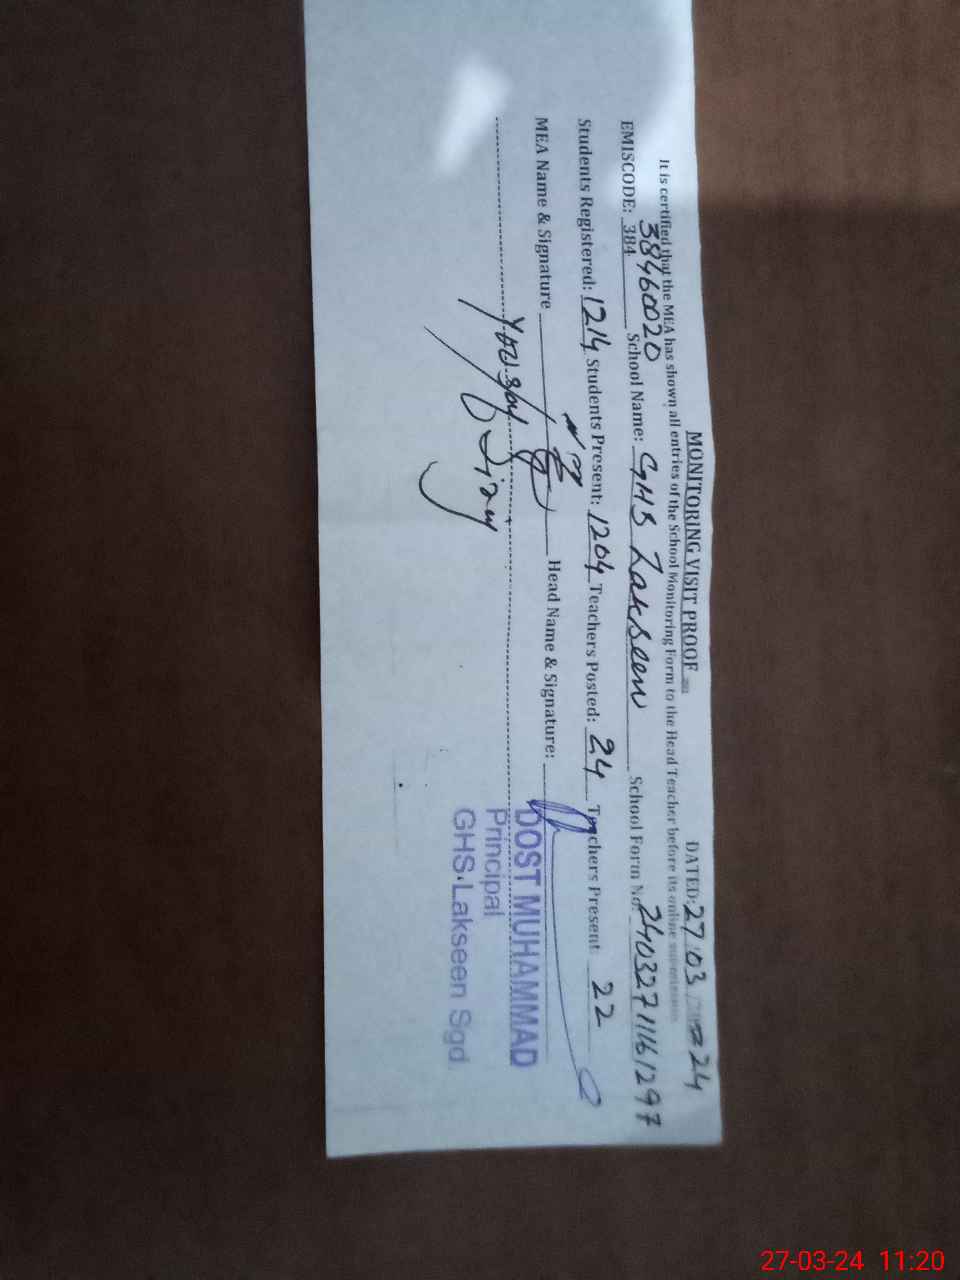 MONITORING VISIT PROOF
DATED: 27/03/2024
It is certified that the MEA has shown all entries of the School Monitoring Form to the Head Teacher before its online submission
38460020
EMISCODE: 384 School Name: GHS Lakseen School Form No: 24032711161297
Students Registered: 1214 Students Present: 1204 Teachers Posted: 24 Teachers Present 22
MEA Name & Signature Head Name & Signature:
DOST MUHAMMAD
Principal
GHS Lakseen Sgd
27-03-24 11:20